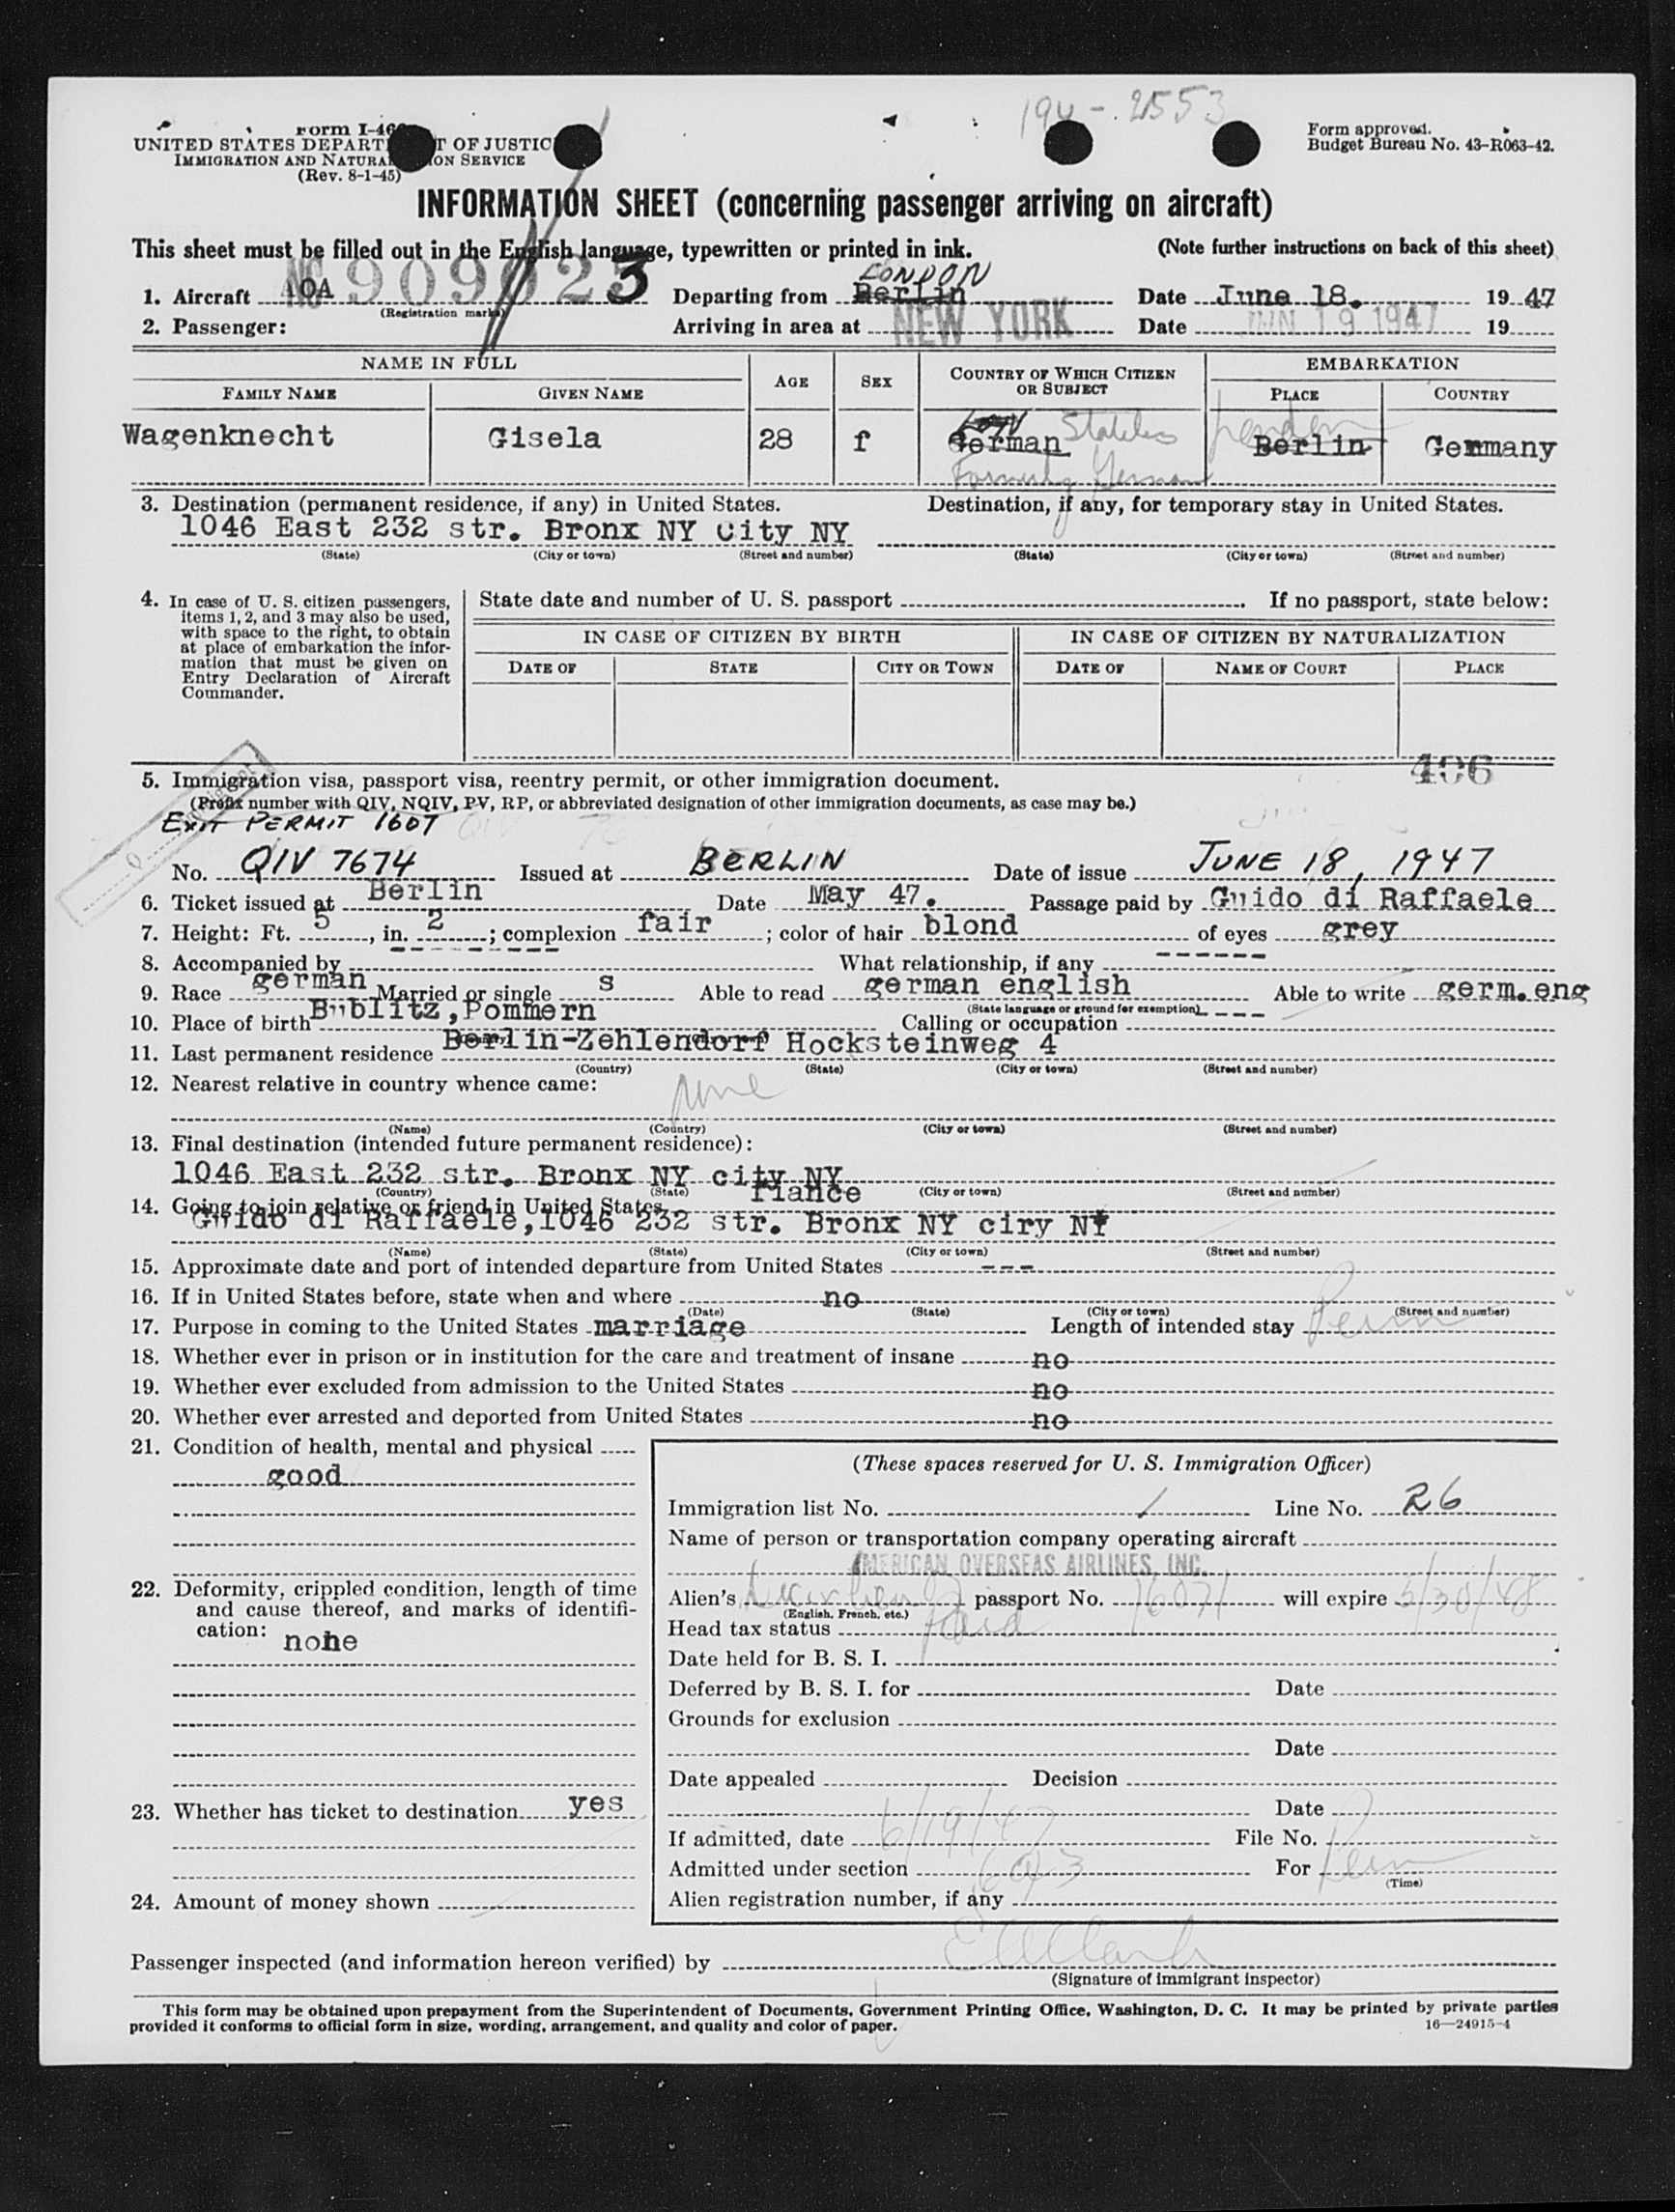 194-2553
Form I-46
UNITED STATES DEPART T OF JUSTIC
IMMIGRATION AND NATURA ON SERVICE
(Rev. 8-1-45)
Form approved.
Budget Bureau No. 43-R063-42.
INFORMATION SHEET (concerning passenger arriving on aircraft)
This sheet must be filled out in the English language, typewritten or printed in ink.
(Note further instructions on back of this sheet)
1. Aircraft AOA NC 909023 (Registration marks) Departing from Berlin LONDON Date June 18. 1947
2. Passenger: Arriving in area at NEW YORK Date JUN 19 1947 19
NAME IN FULL
FAMILY NAME GIVEN NAME AGE SEX COUNTRY OF WHICH CITIZEN OR SUBJECT EMBARKATION
PLACE COUNTRY
Wagenknecht Gisela 28 f German Stateless Berlin London Germany
Formerly German
3. Destination (permanent residence, if any) in United States. Destination, if any, for temporary stay in United States.
1046 East 232 str. Bronx NY City NY
(State) (City or town) (Street and number) (State) (City or town) (Street and number)
4. In case of U. S. citizen passengers, items 1, 2, and 3 may also be used, with space to the right, to obtain at place of embarkation the information that must be given on Entry Declaration of Aircraft Commander.
State date and number of U. S. passport . If no passport, state below:
IN CASE OF CITIZEN BY BIRTH IN CASE OF CITIZEN BY NATURALIZATION
DATE OF STATE CITY OR TOWN DATE OF NAME OF COURT PLACE
406
5. Immigration visa, passport visa, reentry permit, or other immigration document.
(Prefix number with QIV, NQIV, PV, RP, or abbreviated designation of other immigration documents, as case may be.)
EXIT PERMIT 1607
No. QIV 7674 Issued at BERLIN Date of issue JUNE 18, 1947
6. Ticket issued at Berlin Date May 47. Passage paid by Guido di Raffaele
7. Height: Ft. 5, in. 2; complexion fair; color of hair blond of eyes grey
8. Accompanied by ------ What relationship, if any ------
9. Race german Married or single s Able to read german english Able to write germ.eng
(State language or ground for exemption)
10. Place of birth Bublitz,Pommern Calling or occupation ----
11. Last permanent residence Berlin-Zehlendorf Hocksteinweg 4
(Country) (State) (City or town) (Street and number)
12. Nearest relative in country whence came:
none
(Name) (Country) (City or town) (Street and number)
13. Final destination (intended future permanent residence):
1046 East 232 str. Bronx NY city NY
(Country) (State) (City or town) (Street and number)
14. Going to join relative or friend in United States fiance
Guido di Raffaele,1046 232 str. Bronx NY ciry NY
(Name) (State) (City or town) (Street and number)
15. Approximate date and port of intended departure from United States ---
16. If in United States before, state when and where no
(Date) (State) (City or town) (Street and number)
17. Purpose in coming to the United States marriage Length of intended stay Perm
18. Whether ever in prison or in institution for the care and treatment of insane no
19. Whether ever excluded from admission to the United States no
20. Whether ever arrested and deported from United States no
21. Condition of health, mental and physical
good
22. Deformity, crippled condition, length of time and cause thereof, and marks of identification: none
23. Whether has ticket to destination yes
24. Amount of money shown
(These spaces reserved for U. S. Immigration Officer)
Immigration list No. 1 Line No. 26
Name of person or transportation company operating aircraft
AMERICAN OVERSEAS AIRLINES, INC.
Alien's passport No. 16071 will expire 5/30/48
(English, French, etc.)
Head tax status Paid
Date held for B. S. I.
Deferred by B. S. I. for Date
Grounds for exclusion
Date
Date appealed Decision
Date
If admitted, date 6/19/47 File No.
Admitted under section For Perm
(Time)
Alien registration number, if any
Passenger inspected (and information hereon verified) by
(Signature of immigrant inspector)
This form may be obtained upon prepayment from the Superintendent of Documents, Government Printing Office, Washington, D. C. It may be printed by private parties
provided it conforms to official form in size, wording, arrangement, and quality and color of paper. 16—24915-4